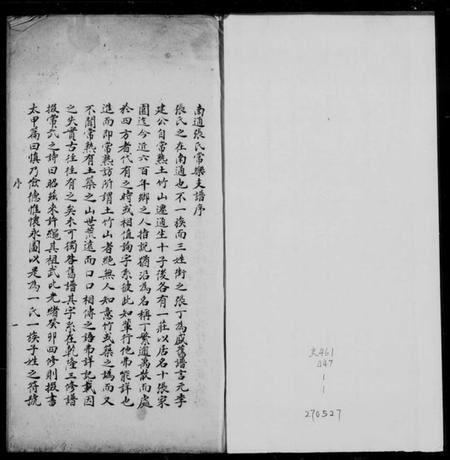 南通張氏常樂支譜序
張氏之在南通也不一族而三姓街之張丁為盛舊譜言元季
建公自常熟土竹山遷通生十子後各有一莊以店名十張家
園迄今近六百年鄉之人指說猶沿為名稱丁繁衍萬散而處
於四方者代有之時或相值詢字系彼此如輩行他弗能詳也
進而即常熟訪所謂土竹山者絕無人知意竹或築之譌而又
不聞常熟有土築之山世荒遠而口口相傳之語弗詳記載因
之失實古往往有之矣不可獨咎舊譜其字系在乾隆三修譜
掇常武之詩曰昭茲來許繩其祖武此光緒癸卯四修則掇書
太甲篇曰慎乃儉德惟懷永圖以是為一氏一族子姓之符號
序
一
史461
047
1
1
270527